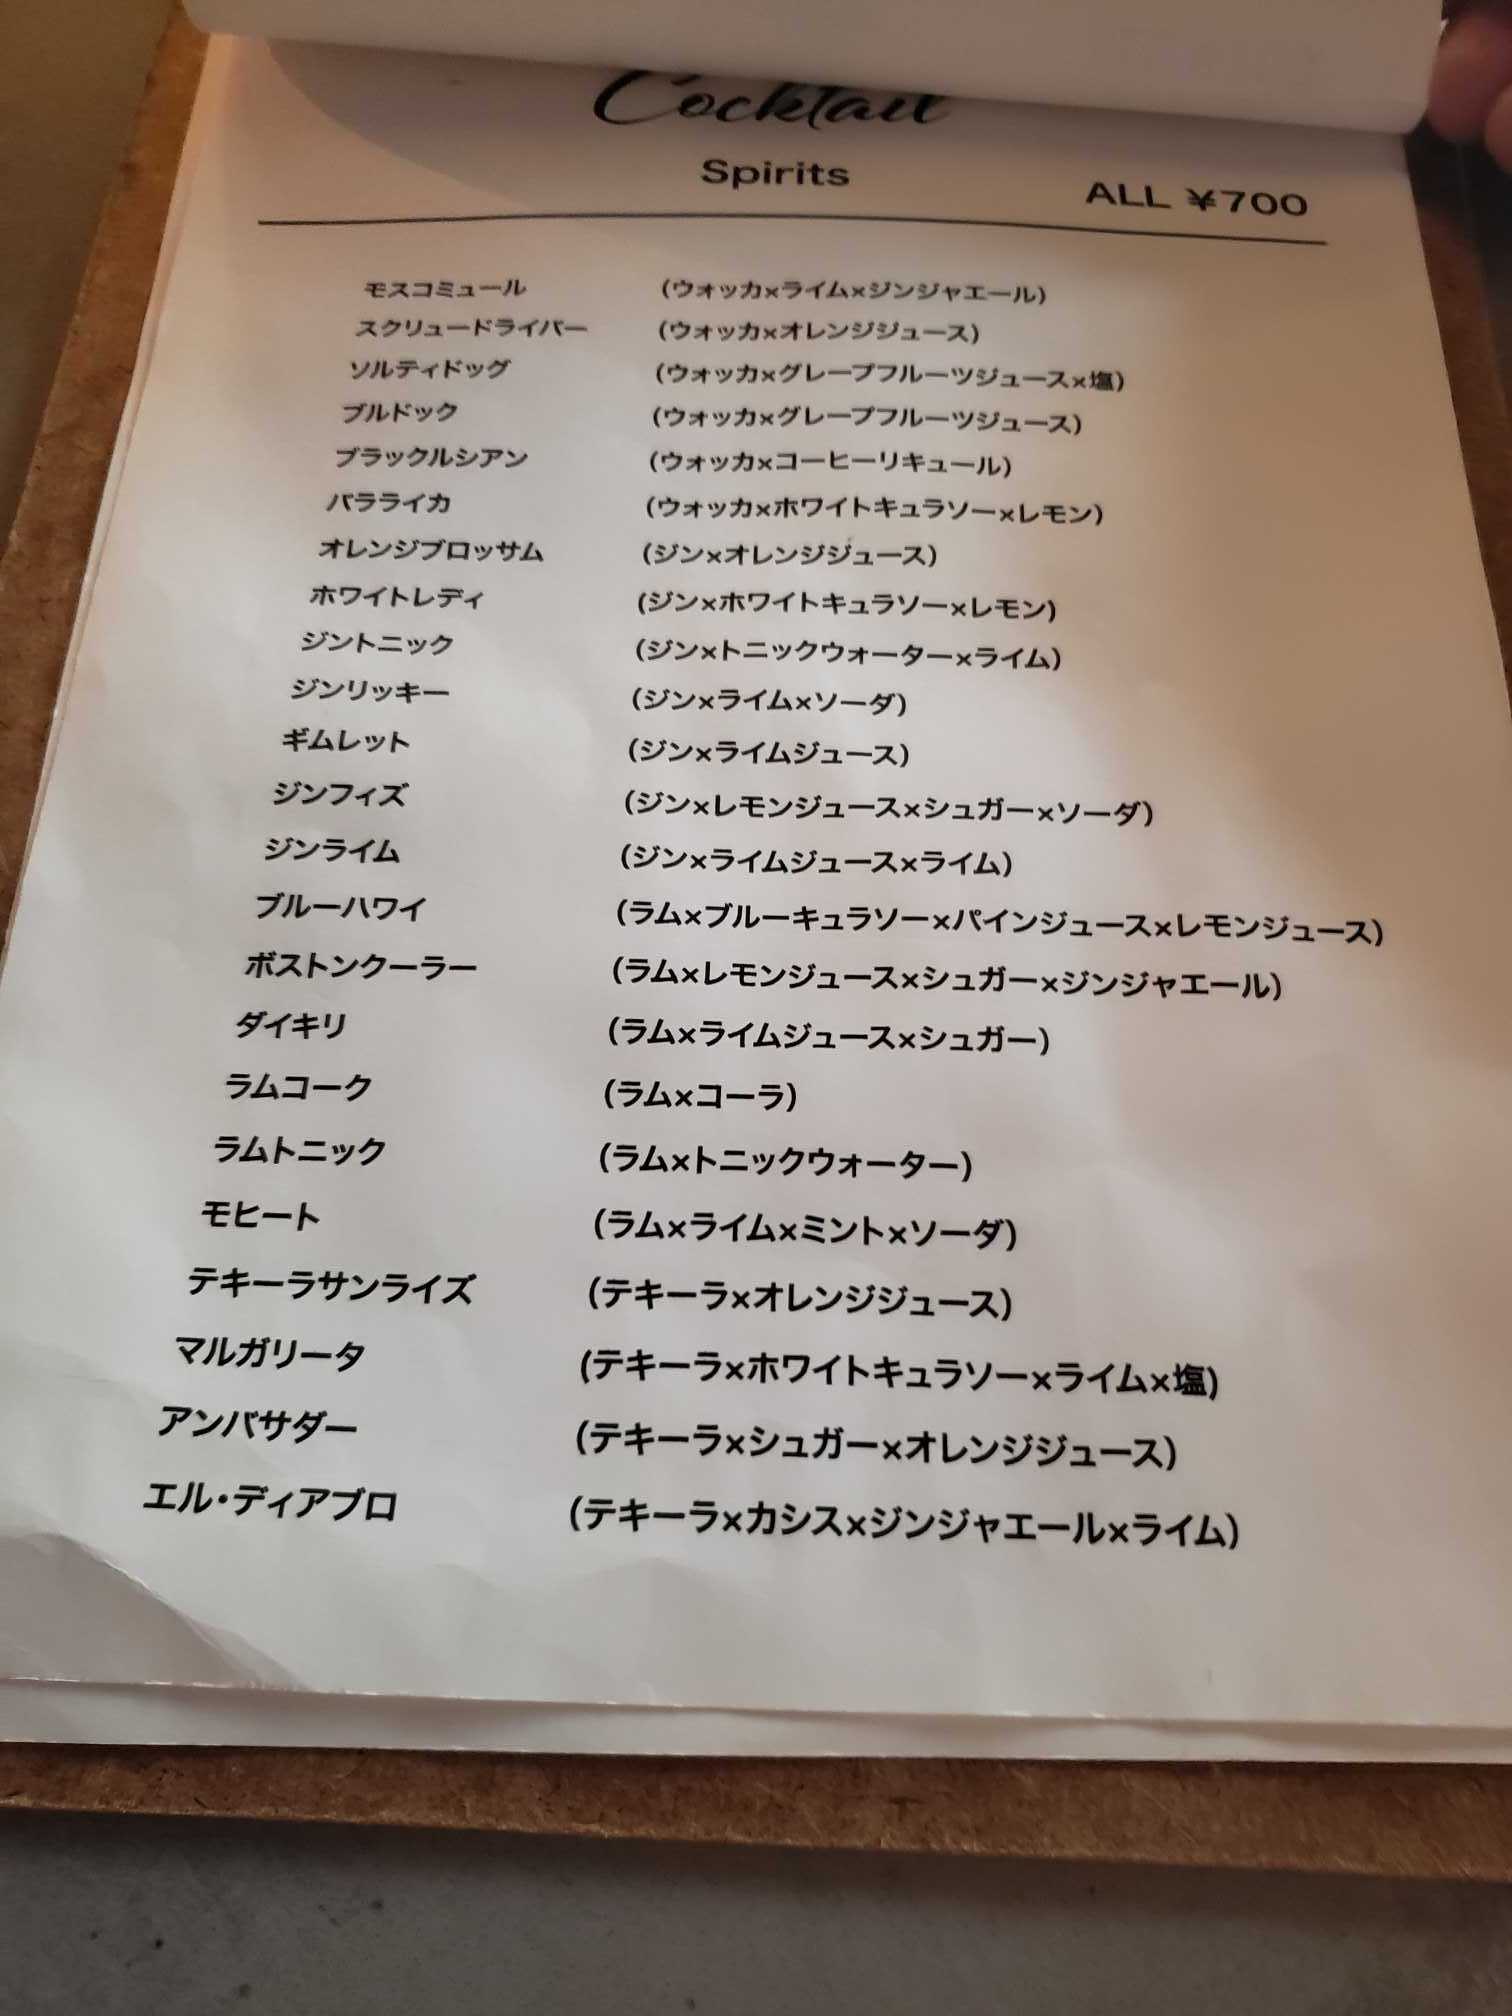 Cocktail
Spirits
ALL ¥700
モスコミュール (ウォッカ×ライム×ジンジャエール)
スクリュードライバー (ウォッカ×オレンジジュース)
ソルティドッグ (ウォッカ×グレープフルーツジュース×塩)
ブルドック (ウォッカ×グレープフルーツジュース)
ブラックルシアン (ウォッカ×コーヒーリキュール)
バラライカ (ウォッカ×ホワイトキュラソー×レモン)
オレンジブロッサム (ジン×オレンジジュース)
ホワイトレディ (ジン×ホワイトキュラソー×レモン)
ジントニック (ジン×トニックウォーター×ライム)
ジンリッキー (ジン×ライム×ソーダ)
ギムレット (ジン×ライムジュース)
ジンフィズ (ジン×レモンジュース×シュガー×ソーダ)
ジンライム (ジン×ライムジュース×ライム)
ブルーハワイ (ラム×ブルーキュラソー×パインジュース×レモンジュース)
ボストンクーラー (ラム×レモンジュース×シュガー×ジンジャエール)
ダイキリ (ラム×ライムジュース×シュガー)
ラムコーク (ラム×コーラ)
ラムトニック (ラム×トニックウォーター)
モヒート (ラム×ライム×ミント×ソーダ)
テキーラサンライズ (テキーラ×オレンジジュース)
マルガリータ (テキーラ×ホワイトキュラソー×ライム×塩)
アンバサダー (テキーラ×シュガー×オレンジジュース)
エル・ディアブロ (テキーラ×カシス×ジンジャエール×ライム)